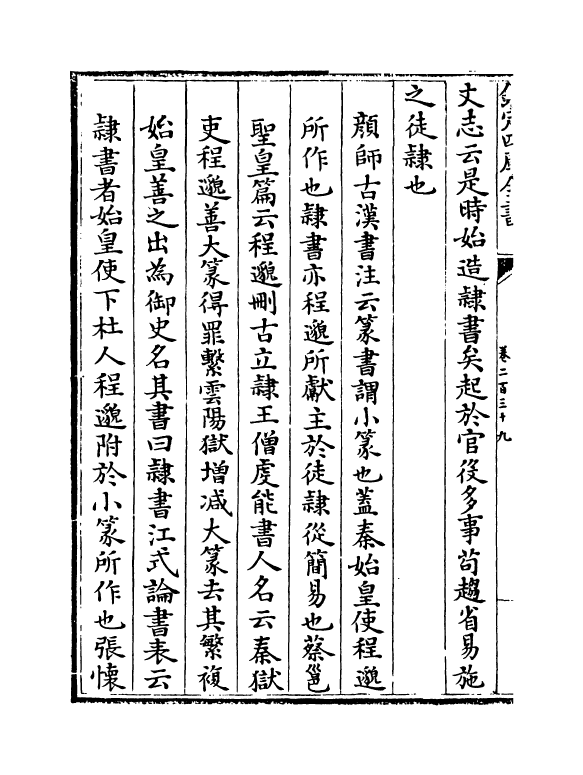 欽定四庫全書
卷二百三十九
文志云是時始造隸書矣起於官役多事茍趨省易施
之徒隸也
顔師古漢書注云篆書謂小篆也葢秦始皇使程邈
所作也隸書亦程邈所獻主於徒隸從簡易也蔡邕
聖皇篇云程邈刪古立隸王僧虔能書人名云秦獄
吏程邈善大篆得罪繫雲陽獄增減大篆去其繁複
始皇善之出為御史名其書曰隸書江式論書表云
隸書者始皇使下杜人程邈附於小篆所作也張懷